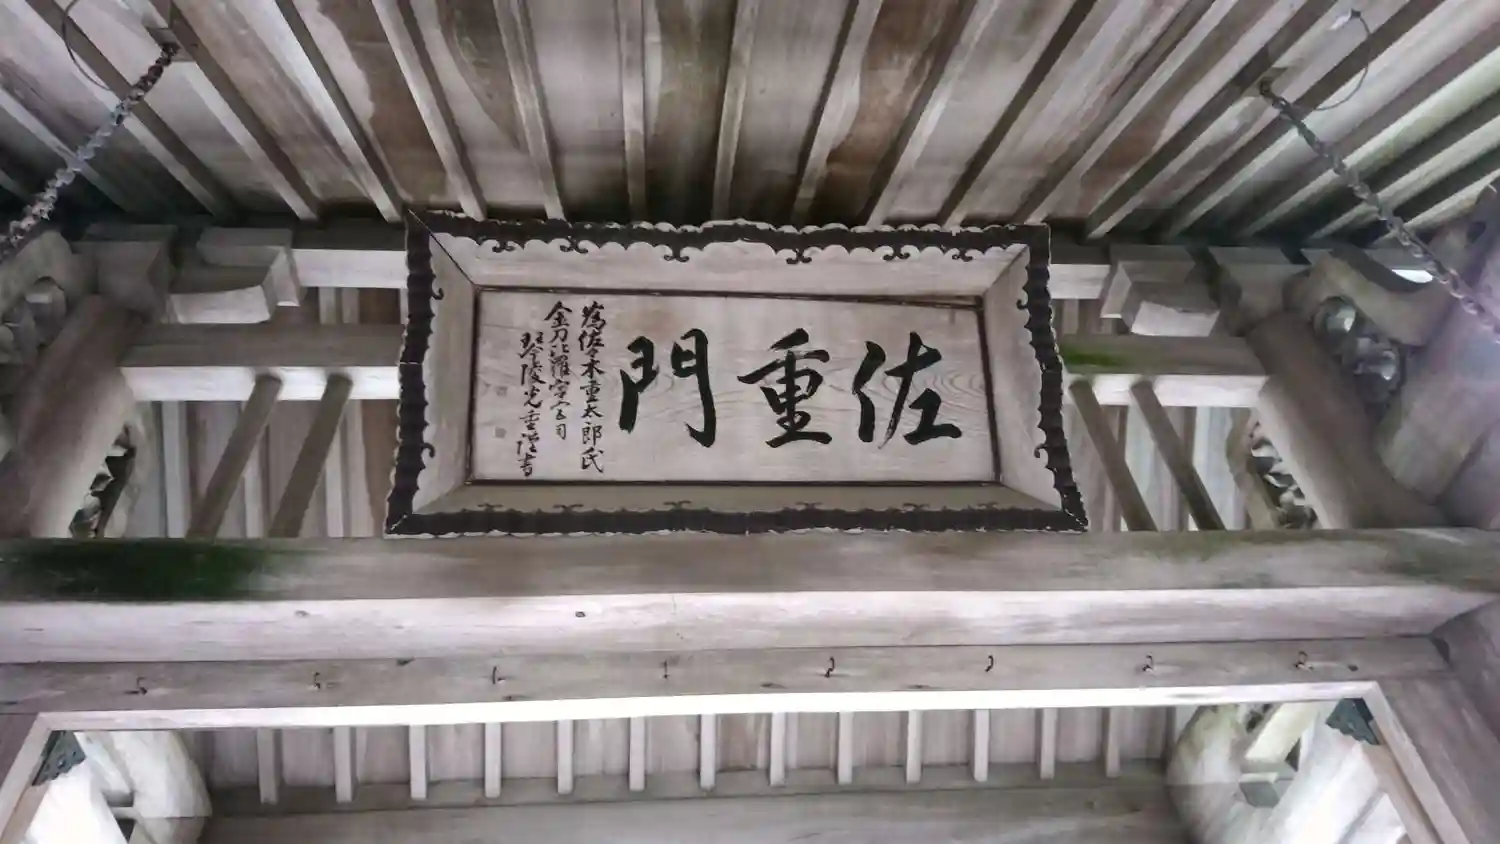 佐重門
為佐々木重太郎氏
金刀比羅宮宮司
琴陵光重謹書